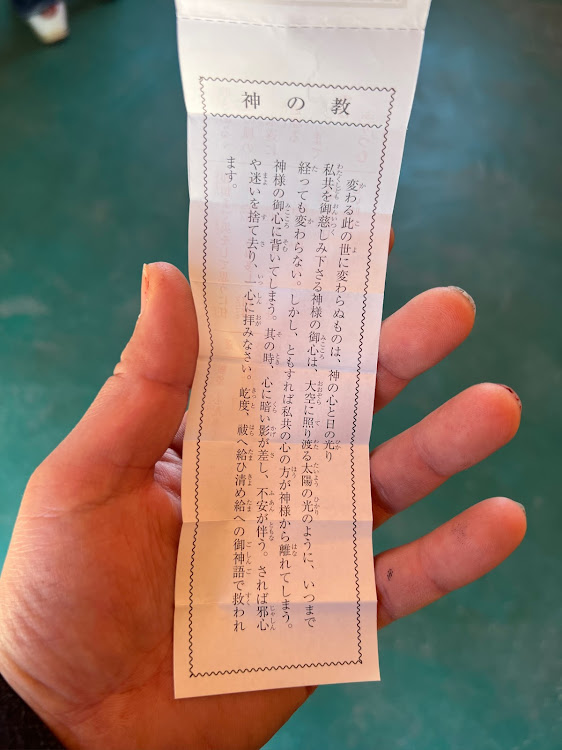 神の教
変わる此の世に変わらぬものは、神の心と日の光り
私共を御慈しみ下さる神様の御心は、大空に照り渡る太陽の光のように、いつまで
経っても変わらない。しかし、ともすれば私共の心の方が神様から離れてしまう。
神様の御心に背いてしまう。其の時、心に暗い影が差し、不安が伴う。されば邪心
や迷いを捨て去り、一心に拝みなさい。屹度、祓へ給ひ清め給への御神語で救われ
ます。